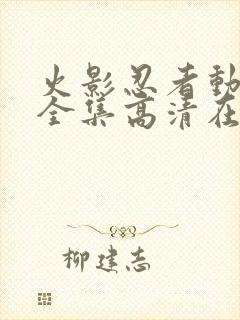 火影忍者動
全集高清在
柳建志